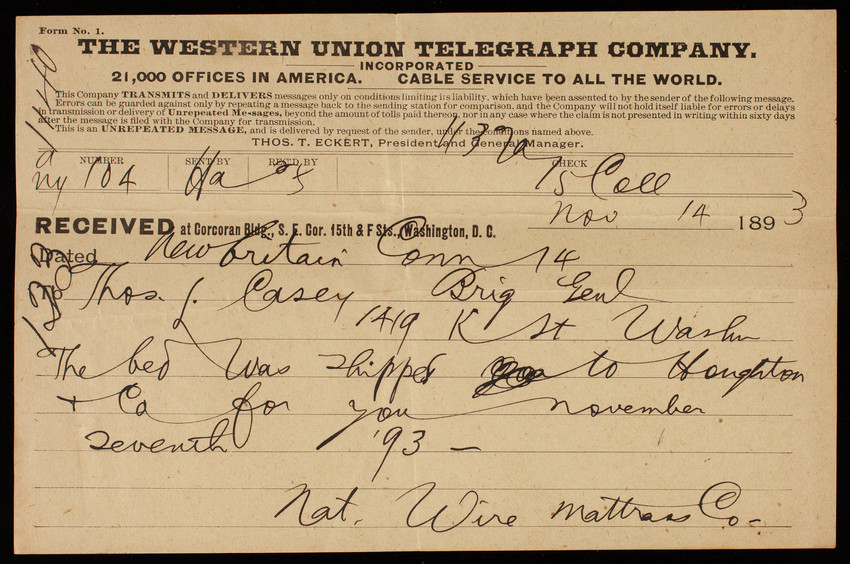 Form No. 1.
THE WESTERN UNION TELEGRAPH COMPANY.
INCORPORATED
21,000 OFFICES IN AMERICA. CABLE SERVICE TO ALL THE WORLD.
This Company TRANSMITS and DELIVERS messages only on conditions limiting its liability, which have been assented to by the sender of the following message.
Errors can be guarded against only by repeating a message back to the sending station for comparison, and the Company will not hold itself liable for errors or delays
in transmission or delivery of Unrepeated Messages, beyond the amount of tolls paid thereon, nor in any case where the claim is not presented in writing within sixty days
after the message is filed with the Company for transmission.
This is an UNREPEATED MESSAGE, and is delivered by request of the sender, under the conditions named above.
THOS. T. ECKERT, President and General Manager.
1140
1137a
NUMBER SENT BY REC'D BY CHECK
a
ny 104 Ha S 15 Coll
Nov 14 1893
RECEIVED at Corcoran Bldg., S. E. Cor. 15th & F Sts., Washington, D. C.
Dated New Britain Conn 14
To Thos. J. Casey Brig Genl
1419 K St Washn
The bed was shipped to Houghton
+ Co for you november
seventh '93 —
Nat. Wire Mattrass Co-